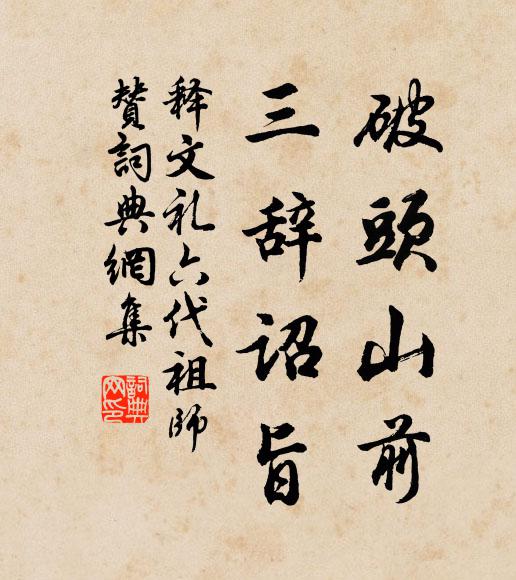 破頭山前
三辞詔旨
释文礼六代祖師
賛詞典網集
詞典
网印